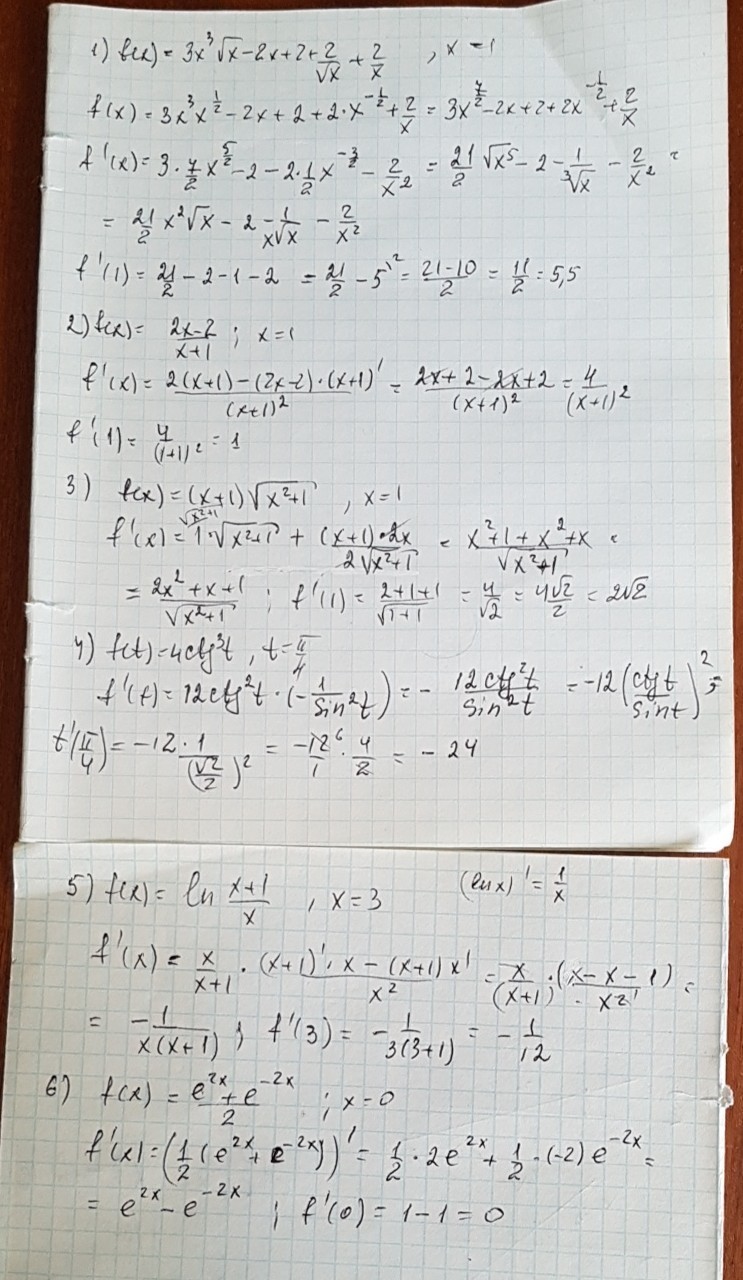 1) f(x) = 3x³√x - 2x + 2 + 2/√x + 2/x , x = 1
f(x) = 3x³x^(1/2) - 2x + 2 + 2·x^(-1/2) + 2/x = 3x^(7/2) - 2x + 2 + 2x^(-1/2) + 2/x
f'(x) = 3·7/2 x^(5/2) - 2 - 2·1/2 x^(-3/2) - 2/x² = 21/2 √x⁵ - 2 - 1/³√x - 2/x² =
= 21/2 x²√x - 2 - 1/x√x - 2/x²
f'(1) = 21/2 - 2 - 1 - 2 = 21/2 - 5^\2 = (21-10)/2 = 11/2 = 5,5
2) f(x) = (2x-2)/(x+1) ; x = 1
f'(x) = (2(x+1) - (2x-2)·(x+1)')/(x+1)² = (2x + 2 - 2x + 2)/(x+1)² = 4/(x+1)²
f'(1) = 4/(1+1)² = 1
3) f(x) = (x+1)√(x²+1) , x = 1
f'(x) = 1^(√(x²+1))·√(x²+1) + (x+1)·2x/2√(x²+1) = (x²+1 + x²+x)/√(x²+1) =
= (2x²+x+1)/√(x²+1) ; f'(1) = (2+1+1)/√(1+1) = 4/√2 = 4√2/2 = 2√2
4) f(t) = 4ctg³t , t = π/4
f'(t) = 12ctg²t · (-1/sin²t) = - 12ctg²t/sin²t = -12(ctgt/sint)² ;
f'(π/4) = -12·1/(√2/2)² = -12^6/1 · 4/2 = - 24
5) f(x) = ln (x+1)/x , x = 3 (ln x)' = 1/x
f'(x) = x/(x+1) · ((x+1)'·x - (x+1)x')/x² = x/(x+1) · (x-x-1)/x² =
= -1/x(x+1) ; f'(3) = -1/3(3+1) = - 1/12
6) f(x) = (e^(2x) + e^(-2x))/2 ; x = 0
f'(x) = (1/2 (e^(2x) + e^(-2x)))' = 1/2 · 2e^(2x) + 1/2 · (-2) e^(-2x) =
= e^(2x) - e^(-2x) ; f'(0) = 1 - 1 = 0